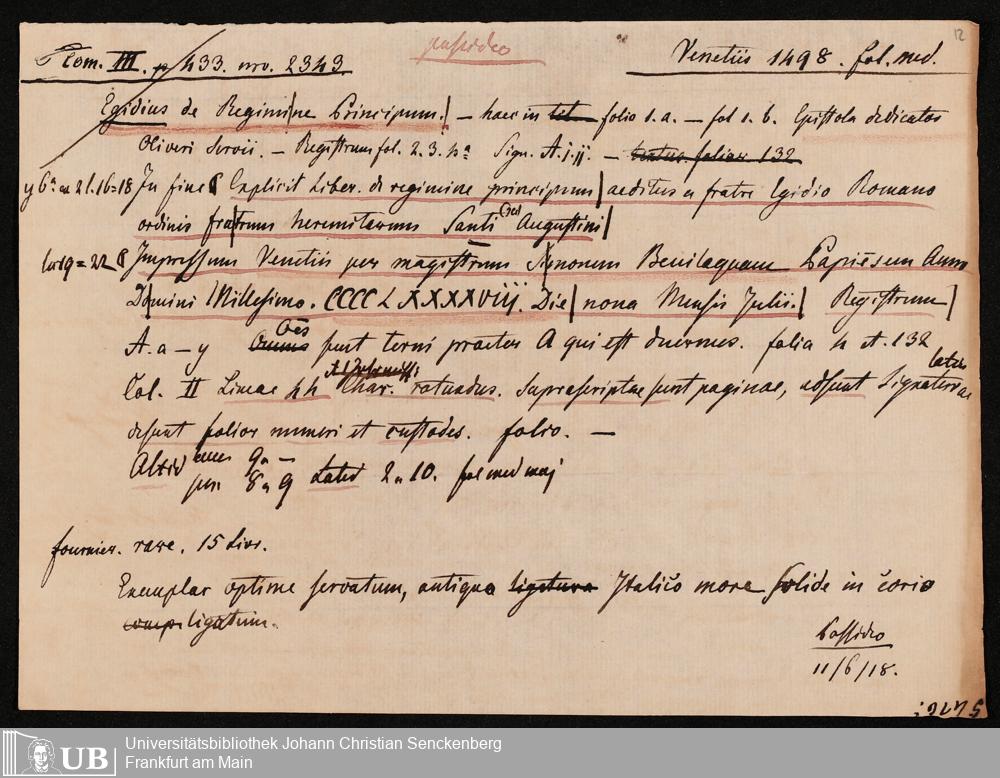 12
possideo
Tom. III. p 433. nro. 2343
Venetiis 1498. fol. med.
Egidius de Regimine Principum. — haec in tit folio 1. a. — fol 1. b. Epistola dedicatos
Oliveri Servii. — Registrum fol. 2. 3. Sign. A. j. jj. — folior 132
In fine Explicit Liber de regimine principum aeditus a fratre Egidio Romano
ordinis fratrum heremitarum Santi Augustini
Impressum Venetiis per magistrum Simonem Bevilaquam Papiēsem Anno
Domini Millesimo. CCCCLXXXXViij. Die nona Mensis Julii. Registrum
A. a — y Oēs sunt terni praeter A qui est duernus. folia 132
Col. II Lineae Char. rotundus. Suprascriptae sunt paginae, adsunt Signaturae
desunt folior numeri et custodes. folio. —
Altid 9
8 9 Latid 2 10. fol med maj
fournier. rare. 15 Livr.
Exemplar optime servatum, antiqua ligatura Italico more solide in corio
ligatum.
Possideo
11/6/18.
UB
Universitätsbibliothek Johann Christian Senckenberg
Frankfurt am Main